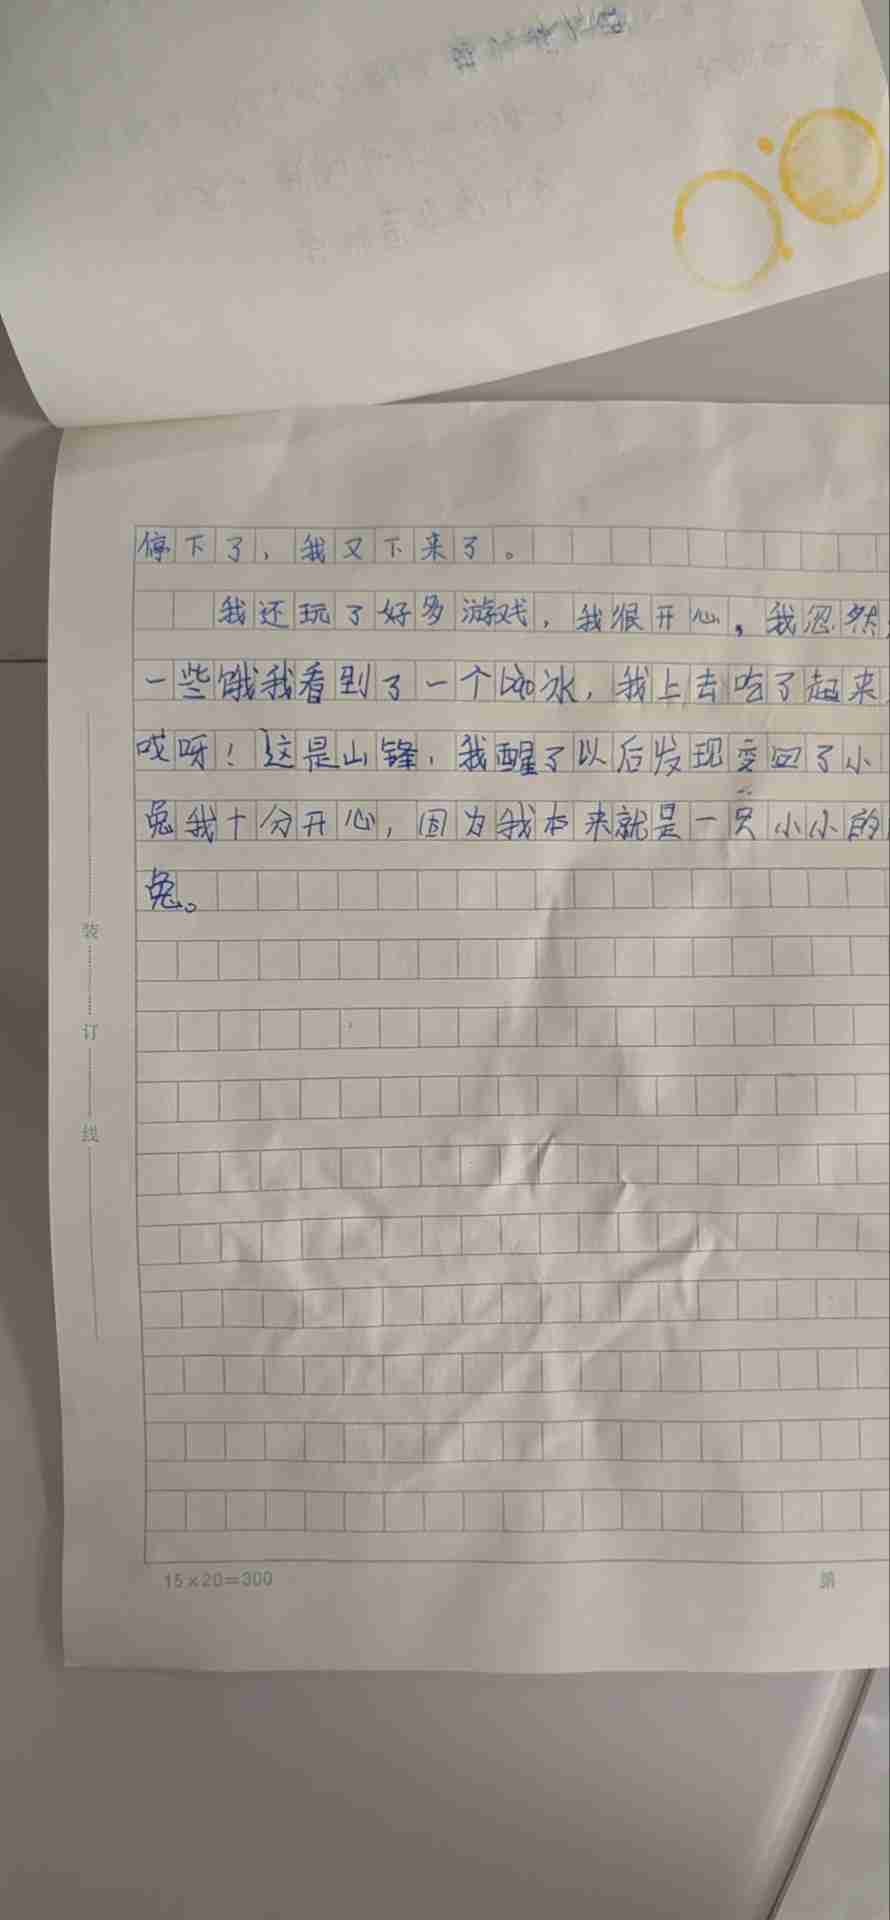 停下了，我又下来了。
我还玩了好多游戏，我很开心，我忽然
一些饿我看到了一个bao冰，我上去吃了起来
哎呀！这是山锋，我醒了以后发现变回了小
兔我十分开心，因为我本来就是一只小小的
兔。
装
订
线
15×20=300
第